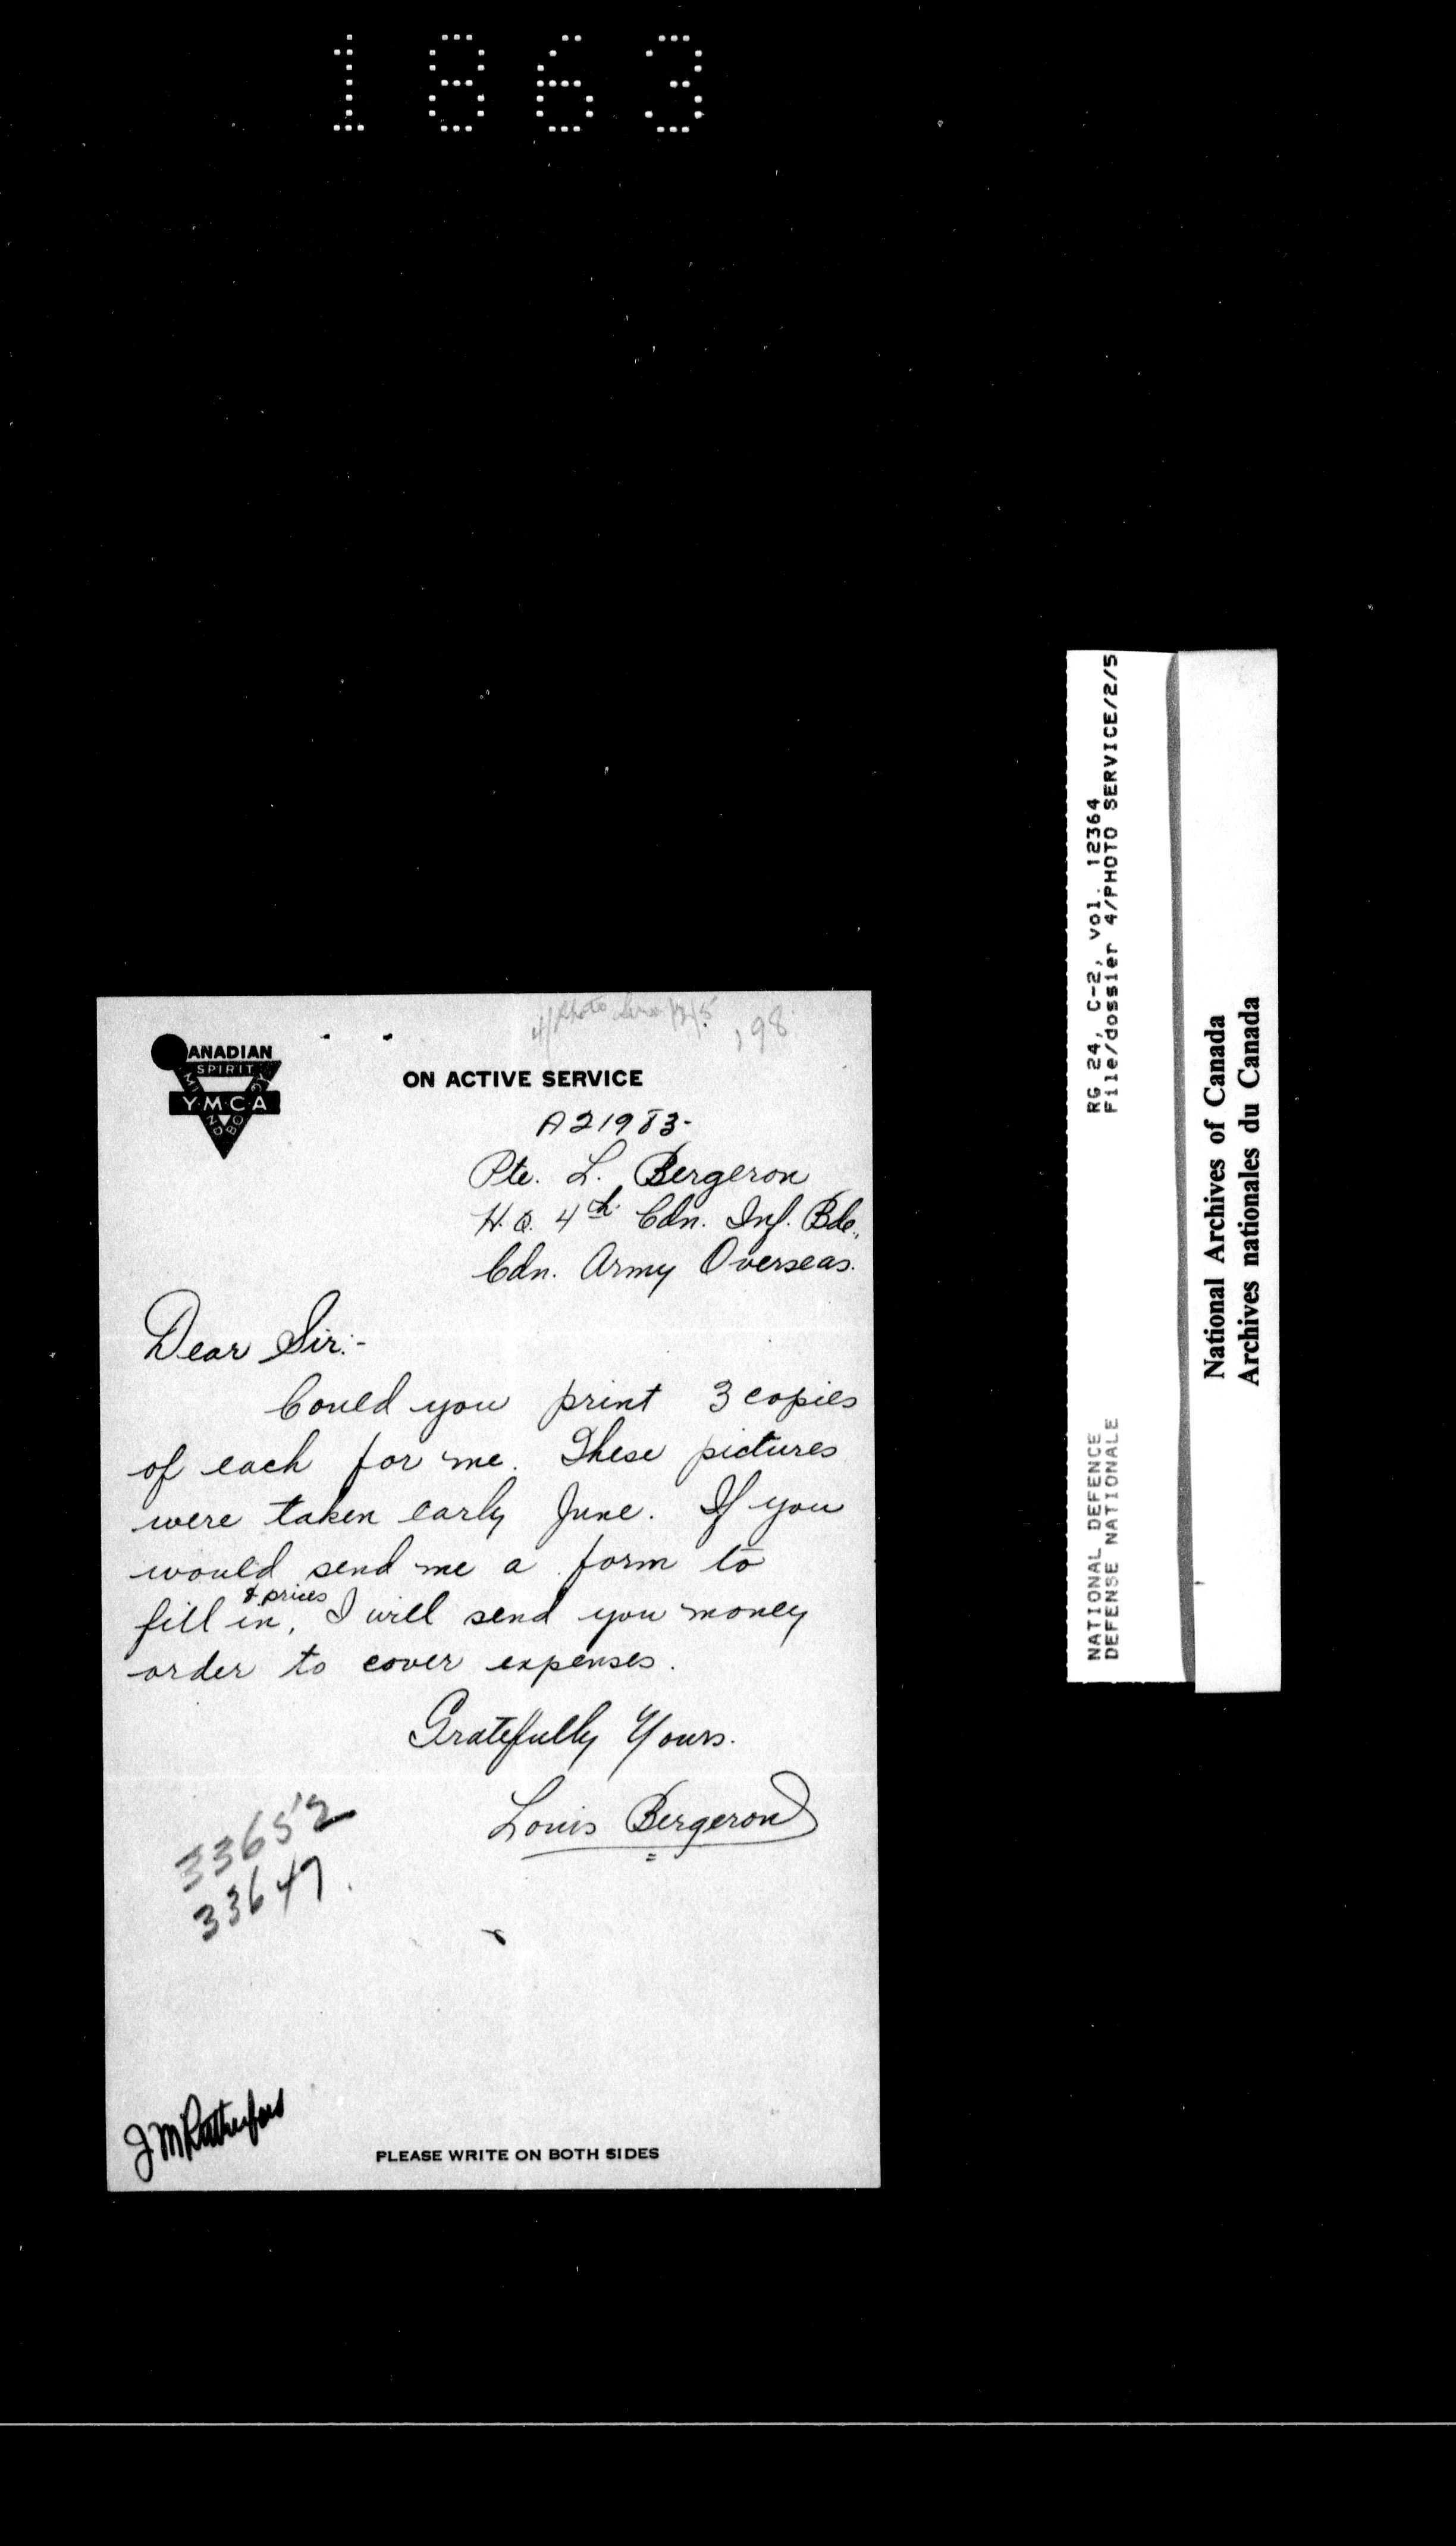 1863
4/Photo Serv/2/5
, 98
CANADIAN
SPIRIT
MIND
BODY
Y·M·C·A
ON ACTIVE SERVICE
A21983-
Pte. L. Bergeron
H.Q. 4th Cdn. Inf. Bde.,
Cdn. Army Overseas.
Dear Sir:-
Could you print 3 copies
of each for me. These pictures
were taken early June. If you
would send me a form to
& prices
fill in, I will send you money
order to cover expenses.
Gratefully Yours.
Louis Bergeron
33652
33647.
JM Rutherford
PLEASE WRITE ON BOTH SIDES
RG 24, C-2, vol. 12364
File/dossier 4/PHOTO SERVICE/2/5
NATIONAL DEFENCE
DEFENSE NATIONALE
National Archives of Canada
Archives nationales du Canada